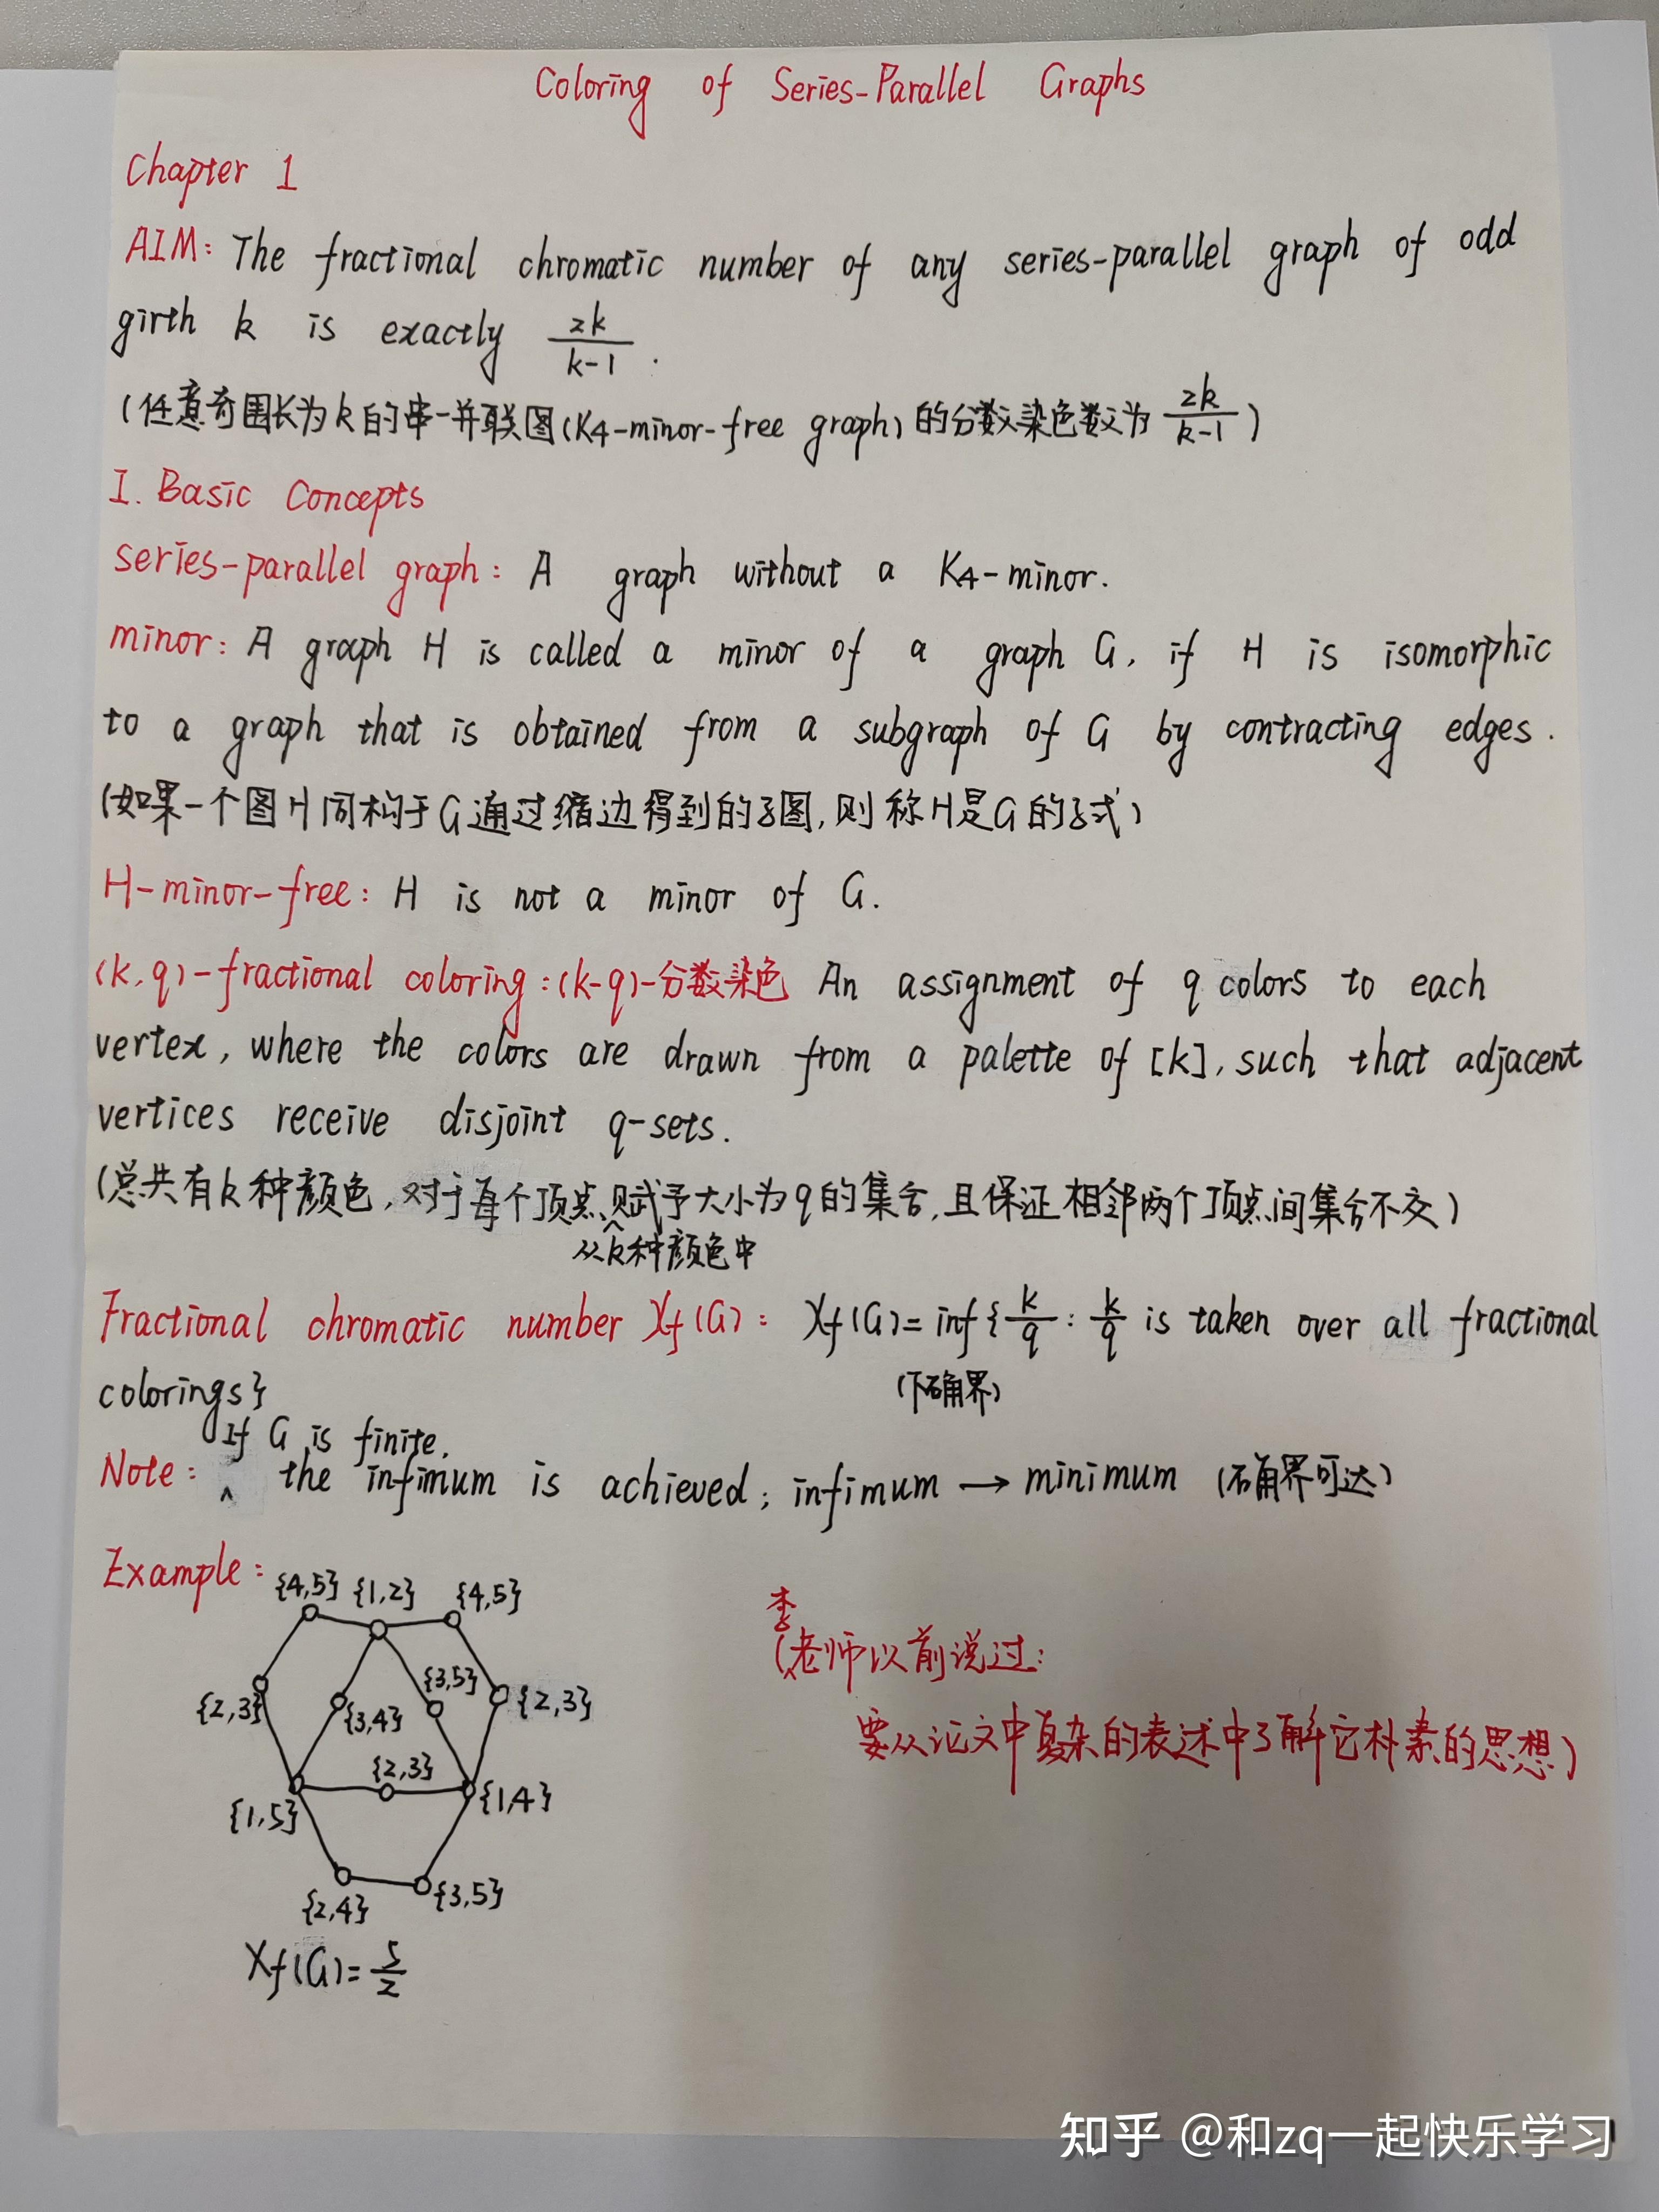 Coloring of Series-Parallel Graphs
Chapter 1
AIM: The fractional chromatic number of any series-parallel graph of odd
girth k is exactly 2k/(k-1).
(任意奇围长为k的串-并联图(K4-minor-free graph)的分数染色数为 2k/(k-1))
I. Basic Concepts
series-parallel graph: A graph without a K4-minor.
minor: A graph H is called a minor of a graph G, if H is isomorphic
to a graph that is obtained from a subgraph of G by contracting edges.
(如果一个图H同构于G通过缩边得到的子图,则称H是G的子式)
H-minor-free: H is not a minor of G.
(k,q)-fractional coloring:(k-q)-分数染色 An assignment of q colors to each
vertex, where the colors are drawn from a palette of [k], such that adjacent
vertices receive disjoint q-sets.
(总共有k种颜色,对于每个顶点,赋予大小为q的集合,且保证相邻两个顶点间集合不交)
从k种颜色中
Fractional chromatic number χf(G): χf(G)=inf{k/q : k/q is taken over all fractional
colorings}
(下确界)
If G is finite,
Note: ^ the infimum is achieved; infimum → minimum (确界可达)
Example:
{4,5} {1,2} {4,5}
{2,3} {3,4} {3,5} {2,3}
{2,3}
{1,5} {1,4}
{2,4} {3,5}
χf(G)=5/2
李
(老师以前说过:
要从论文中复杂的表述中了解它朴素的思想)
知乎 @和zq一起快乐学习